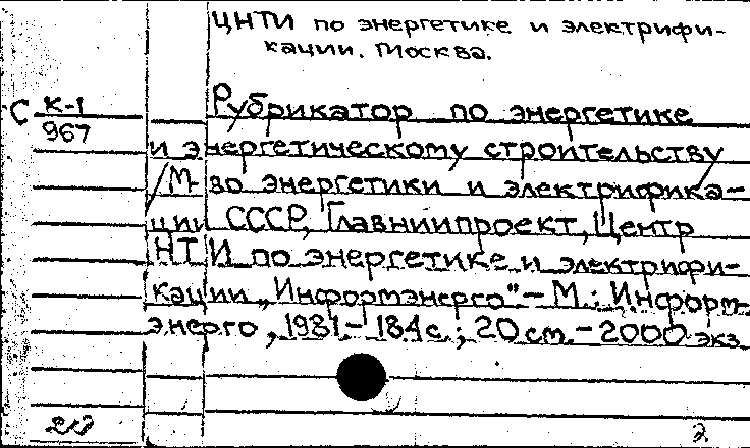 ЦНТИ по энергетике и электрифи-
кации. Москва.
С К-1
967
Рубрикатор по энергетике
и энергетическому строительству
/М-во энергетики и электрифика-
ции СССР, Главниипроект, Центр
НТИ по энергетике и электрифи-
кации „Информэнерго"- М.: Информ-
энерго, 1981.- 184с.; 20см.-2000экз.
2